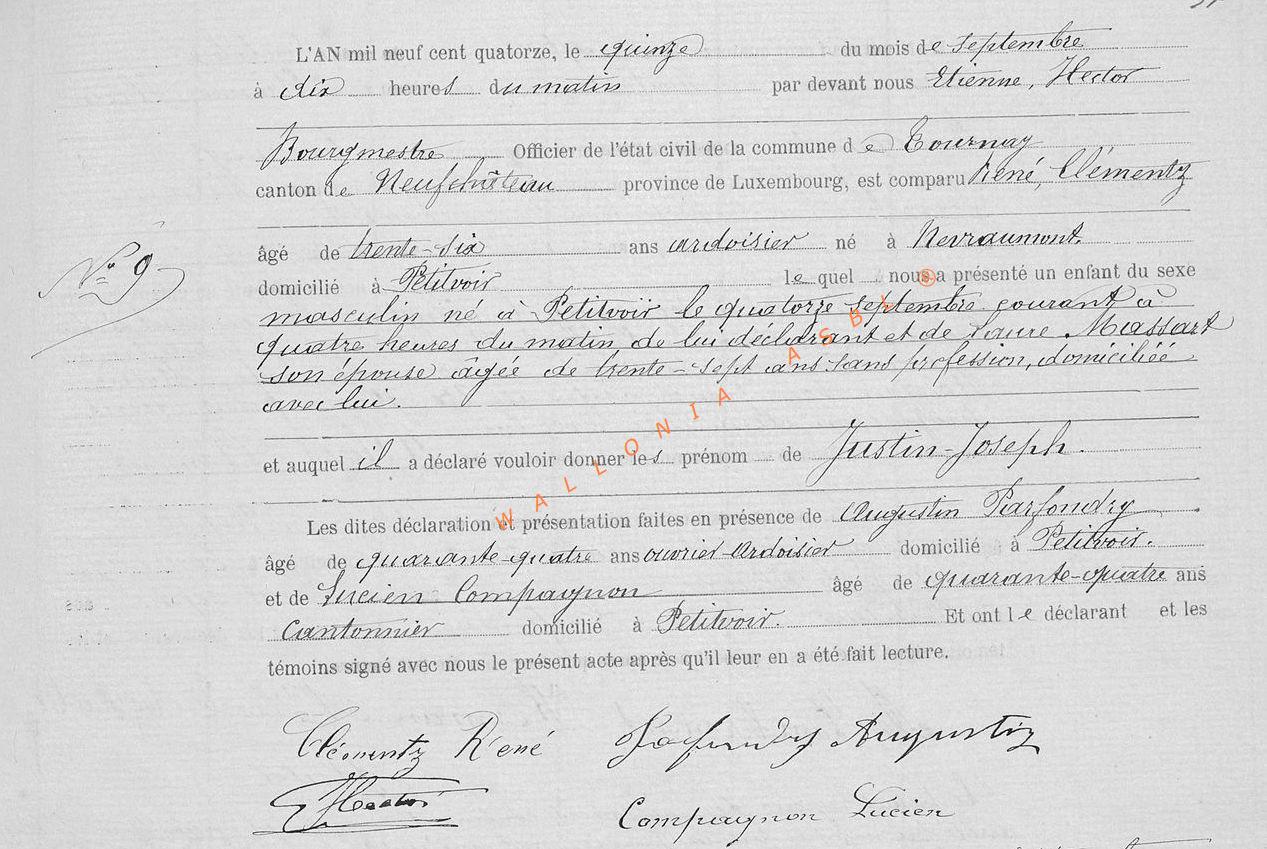 L'AN mil neuf cent quatorze, le quinze du mois de septembre
à dix heures du matin par devant nous Etienne, Hector
Bourgmestre Officier de l'état civil de la commune de Tournay
canton de Neufchâteau province de Luxembourg, est comparu René, Clémentz
âgé de trente-six ans ardoisier né à Nevraumont
domicilié à Petitvoir lequel nous a présenté un enfant du sexe
masculin né à Petitvoir le quatorze septembre courant à
quatre heures du matin de lui déclarant et de Laure Massart
son épouse âgée de trente-sept ans sans profession, domiciliée
avec lui.
et auquel il a déclaré vouloir donner les prénom de Justin-Joseph.
Les dites déclaration et présentation faites en présence de Augustin Parfondry
âgé de quarante-quatre ans ouvrier ardoisier domicilié à Petitvoir.
et de Lucien Compagnon âgé de quarante-quatre ans
Cantonnier domicilié à Petitvoir. Et ont le déclarant et les
témoins signé avec nous le présent acte après qu'il leur en a été fait lecture.
N° 9
Clémentz René Parfondry Augustin
EHector
Compagnon Lucien
WALLONIA ASBL ®